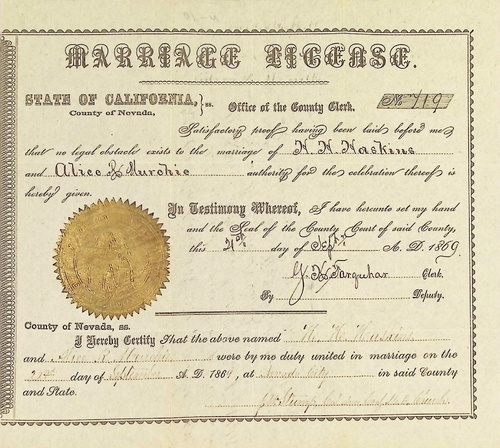 MARRIAGE LICENSE.
STATE OF CALIFORNIA, } ss. Office of the County Clerk. No 719
County of Nevada,
Satisfactory proof having been laid before me
that no legal obstacle exists to the marriage of
and Alice Murchie authority for the celebration thereof is
hereby given.
In Testimony Whereof, I have hereunto set my hand
and the Seal of the County Court of said County,
this 21st day of Sept A. D. 1869.
Farquhar Clerk.
By Deputy.
County of Nevada, ss.
I Hereby Certify That the above named
and were by me duly united in marriage on the
day of September A. D. 1869, at Nevada City in said County
and State.